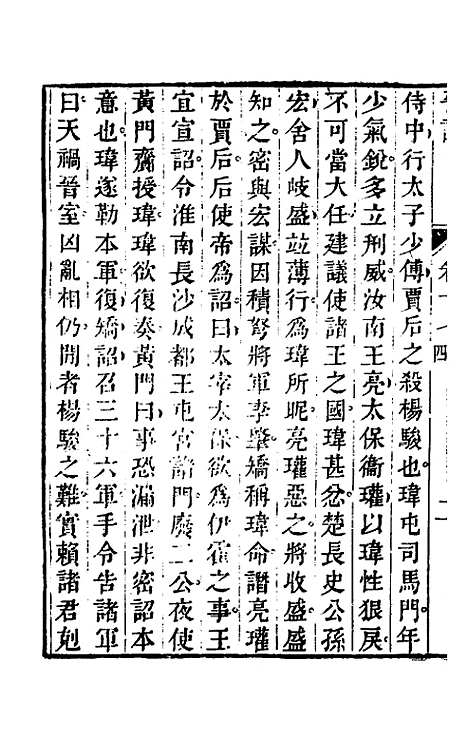 侍中行太子少傅賈后之殺楊駿也瑋屯司馬門年
少氣銳多立刑威汝南王亮太保衞瓘以瑋性狠戾
不可當大任建議使諸王之國瑋甚忿楚長史公孫
宏舍人岐盛竝薄行爲瑋所昵亮瓘惡之將收盛盛
知之密與宏謀因積弩將軍李肇矯稱瑋命譖亮瓘
於賈后后使帝爲詔曰太宰太保欲爲伊霍之事王
宜宣詔令淮南長沙成都王屯宮諸門廢二公夜使
黃門齎授瑋瑋欲復奏黃門曰事恐漏泄非密詔本
意也瑋遂勒本軍復矯詔召三十六軍手令告諸軍
曰天禍晉室凶亂相仍間者楊駿之難實賴諸君剋